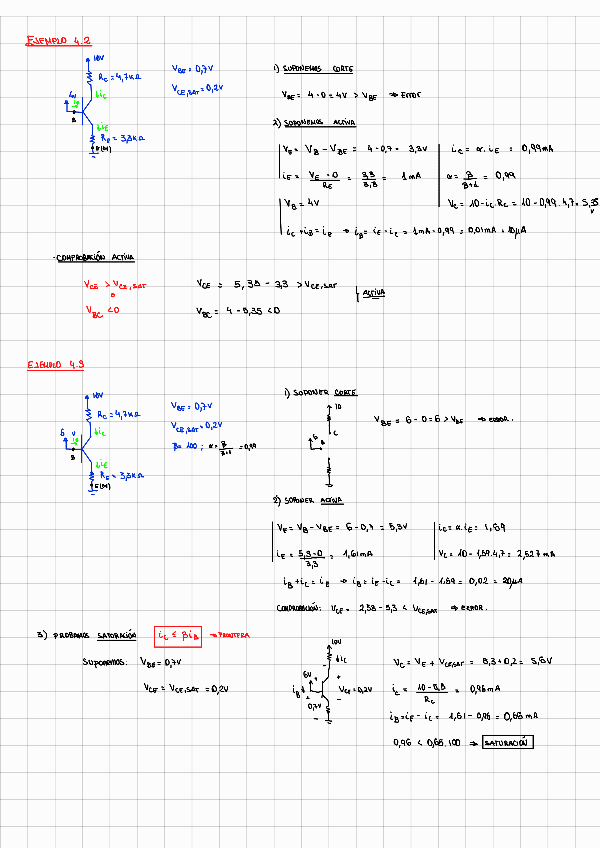 EJEMPLO 4.2
10V
RC = 4,7KΩ
↓iC
4V
iB
B
↓iE
RE = 3,3KΩ
VBE = 0,7V
VCE,SAT = 0,2V
1) SUPONEMOS CORTE
VBE = 4 - 0 = 4V > VBE ⇒ ERROR
2) SUPONEMOS ACTIVA
VE = VB - VBE = 4 - 0,7 = 3,3V
iC = α.iE = 0,99mA
iE = (VE - 0)/RE = 3,3/3,3 = 1mA
α = β/(β+1) = 0,99
VB = 4V
VC = 10 - iC.RC = 10 - 0,99.4,7 = 5,35V
iC + iB = iE → iB = iE - iC = 1mA - 0,99 = 0,01mA = 10μA
- COMPROBACIÓN ACTIVA
VCE > VCE,SAT
VCE = 5,35 - 3,3 > VCE,SAT
ACTIVA
VBC < 0
VBC = 4 - 5,35 < 0
EJEMPLO 4.3
10V
RC = 4,7KΩ
↓iC
6V
iB
B
↓iE
RE = 3,3KΩ
VBE = 0,7V
VCE,SAT = 0,2V
β = 100 ; α = β/(β+1) = 0,99
1) SUPONER CORTE
10
C
6
B
VBE = 6 - 0 = 6 > VBE ⇒ ERROR.
2) SUPONER ACTIVA
VE = VB - VBE = 6 - 0,7 = 5,3V
iC = α.iE = 1,59
iE = (5,3 - 0)/3,3 = 1,61mA
VC = 10 - 1,59.4,7 = 2,527mA
iB + iC = iE → iB = iE - iC = 1,61 - 1,59 = 0,02 = 20μA
COMPROBACIÓN: VCE = 2,53 - 5,3 < VCE,SAT ⇒ ERROR.
3) PROBAMOS SATURACIÓN
iC ≤ βiB → FRONTERA
SUPONEMOS: VBE = 0,7V
VCE = VCE,SAT = 0,2V
10V
↓iC
6V
iB
VCE = 0,2V
0,7V
VC = VE + VCE,SAT = 5,3 + 0,2 = 5,5V
iC = (10 - 5,5)/RC = 0,96mA
iB = iE - iC = 1,61 - 0,96 = 0,65mA
0,96 < 0,65.100 ⇒ SATURACIÓN